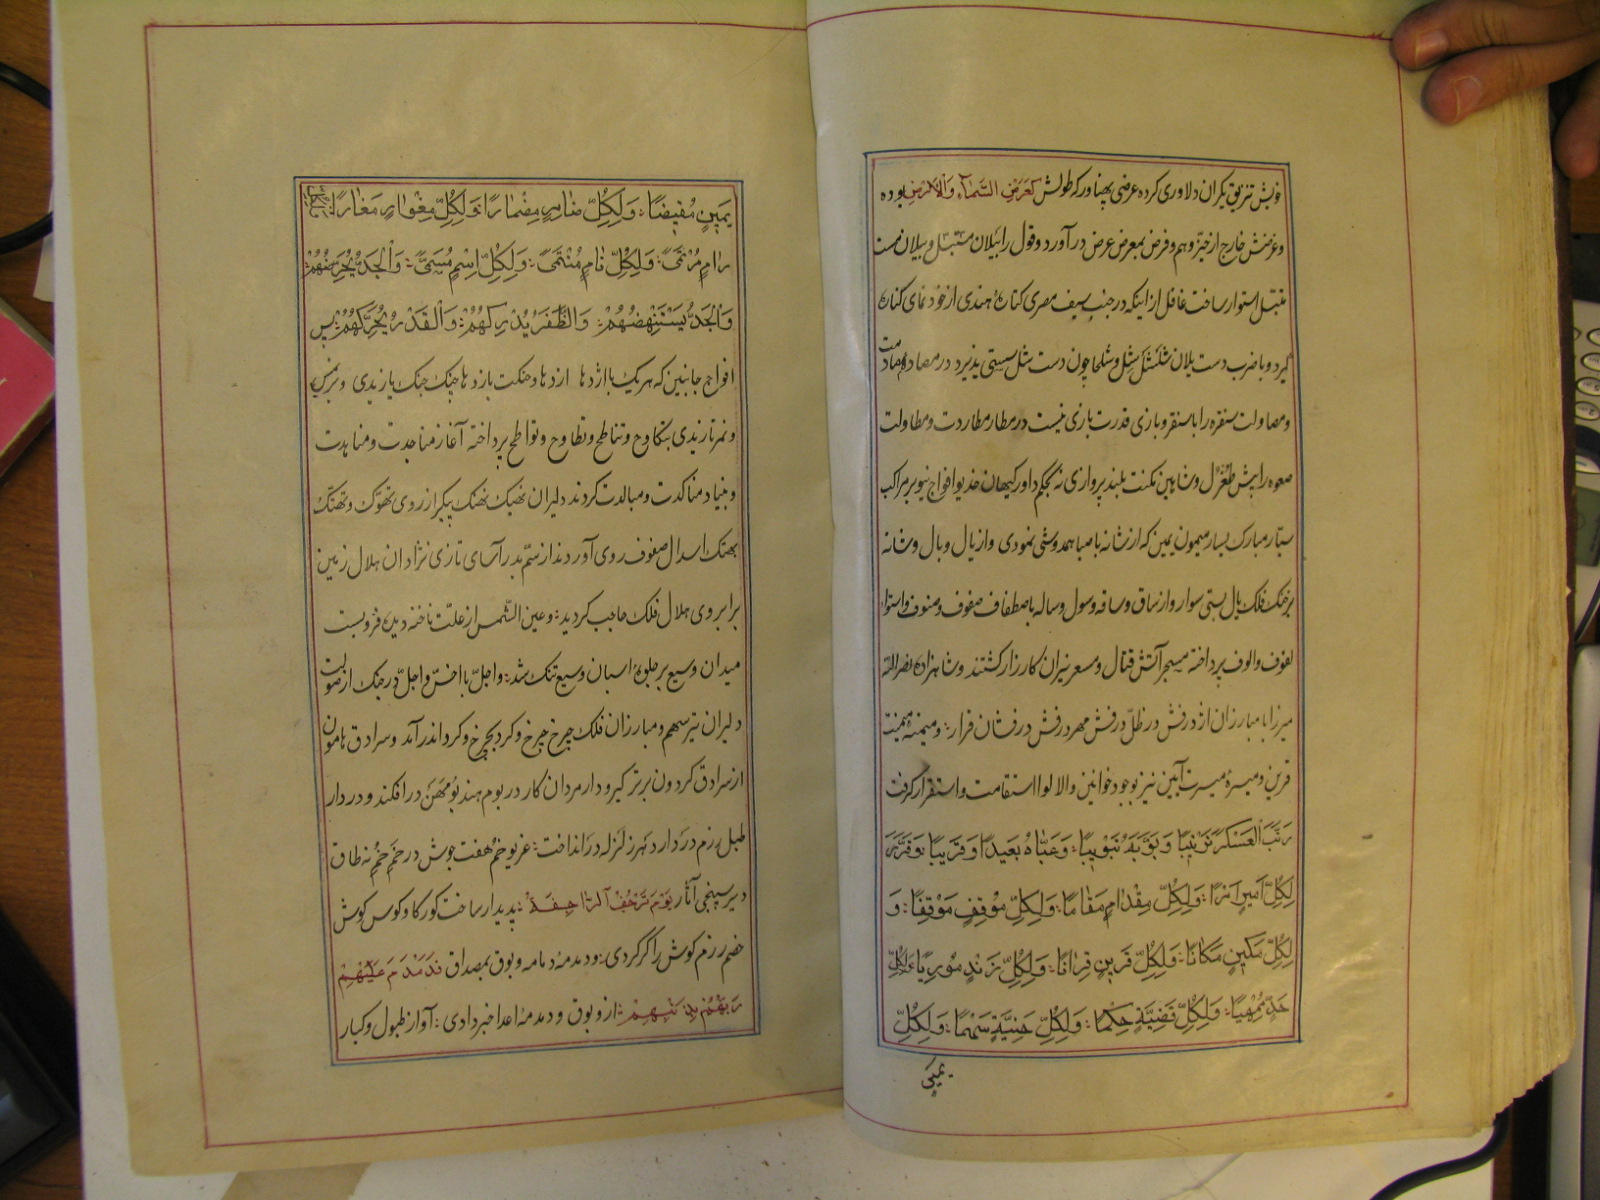 خویش تنزیق یکران دلاوری کرده عرضی پهناور که طولش کعرض السّمآء والارض بوده
و عرضش خارج از حیّز وهم و فرض بمعرض عرض در آورد و قول را بیلان مستبّل و بیلان مست
ساخت غافل از اینکه در جنب سیف مصری کناره هندی از خود نمای کناره
گیرد و با ضرب دست یلان شل و شلحا چون دست شل سستی پذیرد در مصادم
و مصاولت سنقره را با سنقر و بازی قدرت بازی نیست در مطار مطاردت و مطاولت
صعوه را پیش طغرل و شاهین مکنت بلند پروازی نه بحکم داور کیهان خدیو افواج نیو بر مراکب
سیّار مبارک یسار میمون یمین که از شانه با صبا همدوشی نمودی و از یال و بال و شانه
بر خنک فلک یال بستی سوار و از ساق و ساقه وسول و ساله باصطفاف صفوف و منوف و استوا
لفوف و الوف پرداخته مسجر آتش قتال و مسعر نیران کارزار کشتند و شاهزاده نصر الله
میرزا با مبارزان اژدرفش در ظلّ درفش مهر درفش درفشان قرار: و میمنهٔ میمنت
قرین و میسرهٔ میسرت آیین نیز بوجود خوانین والا لوا استقامت و استقرار کرفت
رَتَّبَ الْعَسْكَرَ تَرْتِيبًا وَبَوَّبَهُ تَبْوِيبًا: وَعَبَّاهُ بَعِيدًا وَقَرِيبًا وَقَرَّرَ
لِكُلِّ اَمِيرٍ اَمْرًا: وَلِكُلِّ مِقْدَامٍ مَقَامًا: وَلِكُلِّ مَوْقِفٍ مَوْقِفًا: وَ
لِكُلِّ مَكِينٍ مَكَانًا: وَلِكُلِّ قَرِينٍ قِرَانًا: وَلِكُلِّ زَنْدٍ مُورِيًا: وَلِكُلِّ
حَدٍّ مُمْهِيًا: وَلِكُلِّ قَضِيَّةٍ حُكْمًا: وَلِكُلِّ حَنِيَّةٍ سَهْمًا: وَلِكُلِّ
یمین
يَمِينٍ مُفِيضًا: وَلِكُلِّ ضَامِرٍ مِضْمَارًا: وَلِكُلِّ مِغْوَارٍ مَغَارًا:
رَامٍ مُرْتَمًى: وَلِكُلِّ نَامٍ مُنْتَمًى: وَلِكُلِّ اِسْمٍ مُسَمًّى: وَالْجَدُّ يُحَرِّضُهُمْ
وَالْجَدُّ يَسْتَنْهِضُهُمْ: وَالظَّفَرُ يُدْرِكُهُمْ: وَالْقَدَرُ يُحَرِّكُهُمْ: پس
افواج جانبین که هریک با اژدها اژدها و جنکت بازدها چنک جنک یازیدی و بر نمس
و نمر تازیدی بتکاوح و تناطح و تطاوح و تواطح پرداخته آغاز مناجدت و مناهدت
و بنیاد مناکدت و مبالدت کردند دلیران نهیک نهنک پیکر از روی تهوّک و تهتّک
بهتک اسدال صفوف روی آوردند از سمّ بدر آسای تازی نژادان هلال زمین
برابروی هلال فلک حاجب کردید: و عین الشّمس از علّت ناخنه دیده فرو بست
میدان وسیع بر جلوهٔ اسبان وسیع تنک شد: و اجلّ با اخسّ و اجلّ در جنک از صولت
دلیران تیر سهم و مبارزان فلک چرخ چرخ و کرد بچرخ و کرد اندر آمد و سرادق هامون
از سرادق کردون برتر کیرودار مردان کار در بوم هند بُومُهَن در افکند و دردار
طبل رزم در دار دهر زلزله در انداخت: غریو خُم هفت جوش در خَم خُم نه طاق
دیر سپنجی آثار یَوْمَ تَرْجُفُ الرَّاجِفَةُ: پدیدار ساخت کورکا و کوس کوش
خصم رزم کوش را کر کردی: و دمدمهٔ دمامه و بوق بمصداق فَدَمْدَمَ عَلَيْهِمْ
رَبُّهُمْ بِذَنْبِهِمْ: از و بوق و دمدمهٔ اعدا خبر دادی: آواز طبول و کبار